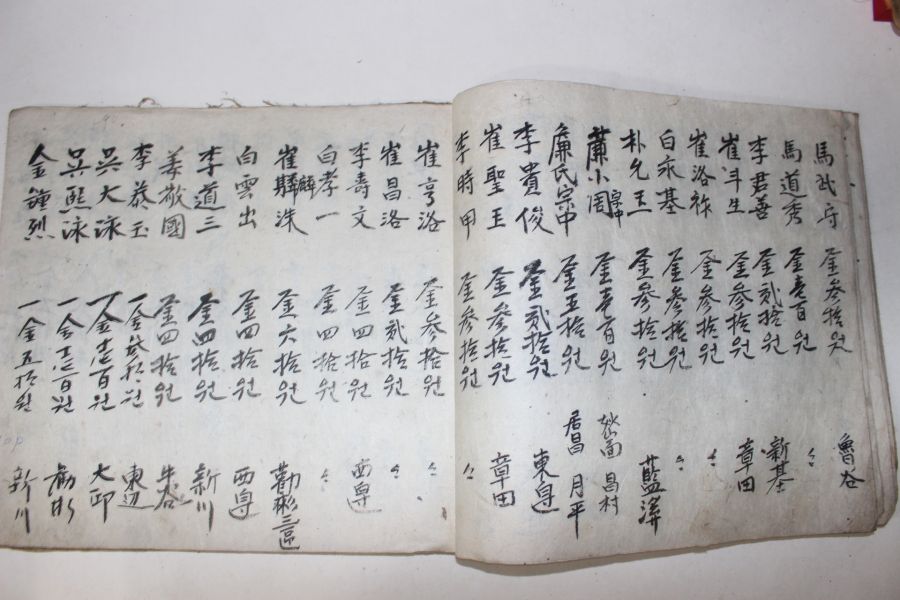 馬武守 金參拾원 魯谷
馬道秀 金壱百원 〃
李君善 金貳拾원 新基
崔斗生 金參拾원 章田
崔洛祢 金參拾원 〃
白永基 金參拾원 〃
朴允玉 金參拾원 藍溪
蕭小周宗中 金壱百원 妙面 昌村
廉氏宗中 金五拾원 居昌 月平
李貴俊 金貳拾원 東邊
崔聖王 金參拾원 章田
李時甲 金參拾원 〃
崔亨洛 金參拾원 〃
崔昌洛 金貳拾원 〃
李壽文 金四拾원 西邊
白孝一 金四拾원 〃
崔麟洙 金六拾원 勸彬三區
白雲出 金四拾원 西邊
李道三 金四拾원 新川
姜敬國 金四拾원 牛谷
李恭玉 一金貳拾원 東辺
吳大泳 一金壱百원 大邱
吳熙泳 一金壱百원 勸彬
金鍾烈 一金五拾원 新川